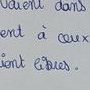 vaient dans
ent à ceux
ient libres.